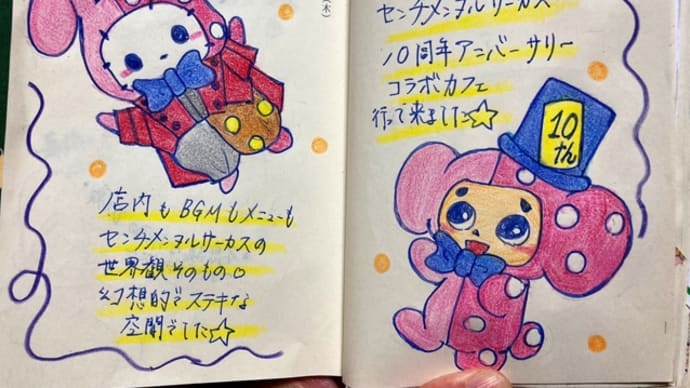 (木)
店内もBGMもメニューも
センチメンタルサーカスの
世界観そのもの♡
幻想的でステキな
空間でした☆
センチメンタルサーカス
10周年アンバーサリー
コラボカフェ
行って来ました☆
10
さん